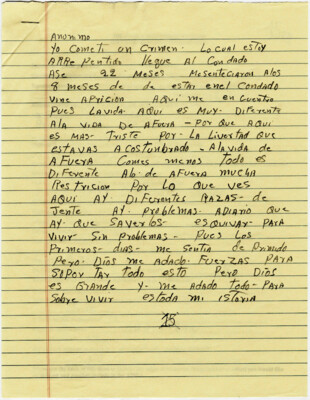 Anonimo
Yo cometi un crimen. Lo cual estoy
ARRe Pentido llegue Al Condado
Ase 22 meses mesentenciaron Alos
8 meses de de estar enel condado
vine APRicion AQui me en cuentro
Pues LAvida AQui es muy. DiFerente
A la viDA De AFueRA - PoR Que AQui
es mas - TRiste PoR - la LiverTad Que
estavas A costumbrado - Alavida de
AFuera Comes menos Todo es
DiFerente Alo. de AFuera mucha
Restricion Por Lo Que ves
AQui AY DiFerentes RAZAS - de
Jente AY. PRoblemas. ADiario Que
AY. Que SAverlos - esQuivar - PARA
vivir Sin Problemas - Pues Los
Primeros - dias - me Sentia de Primido
Pero. Dios me adado. Fuerzas PARA
SoPorTar todo esto Pero Dios
es GRande Y - me ADado todo - PARA
Sobre vivir estoda mi isToria
15